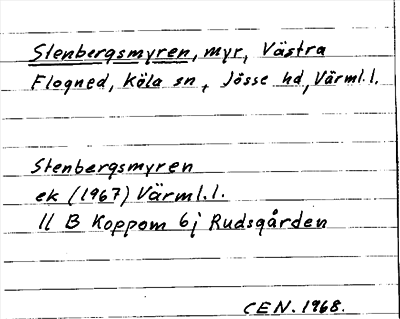 Stenbergsmyren, myr, Västra
Flogned, Köla sn, Jösse hd, Värml.l.
Stenbergsmyren
ek (1967) Värml.l.
11 B Koppom 6j Rudsgården
CEN. 1968.